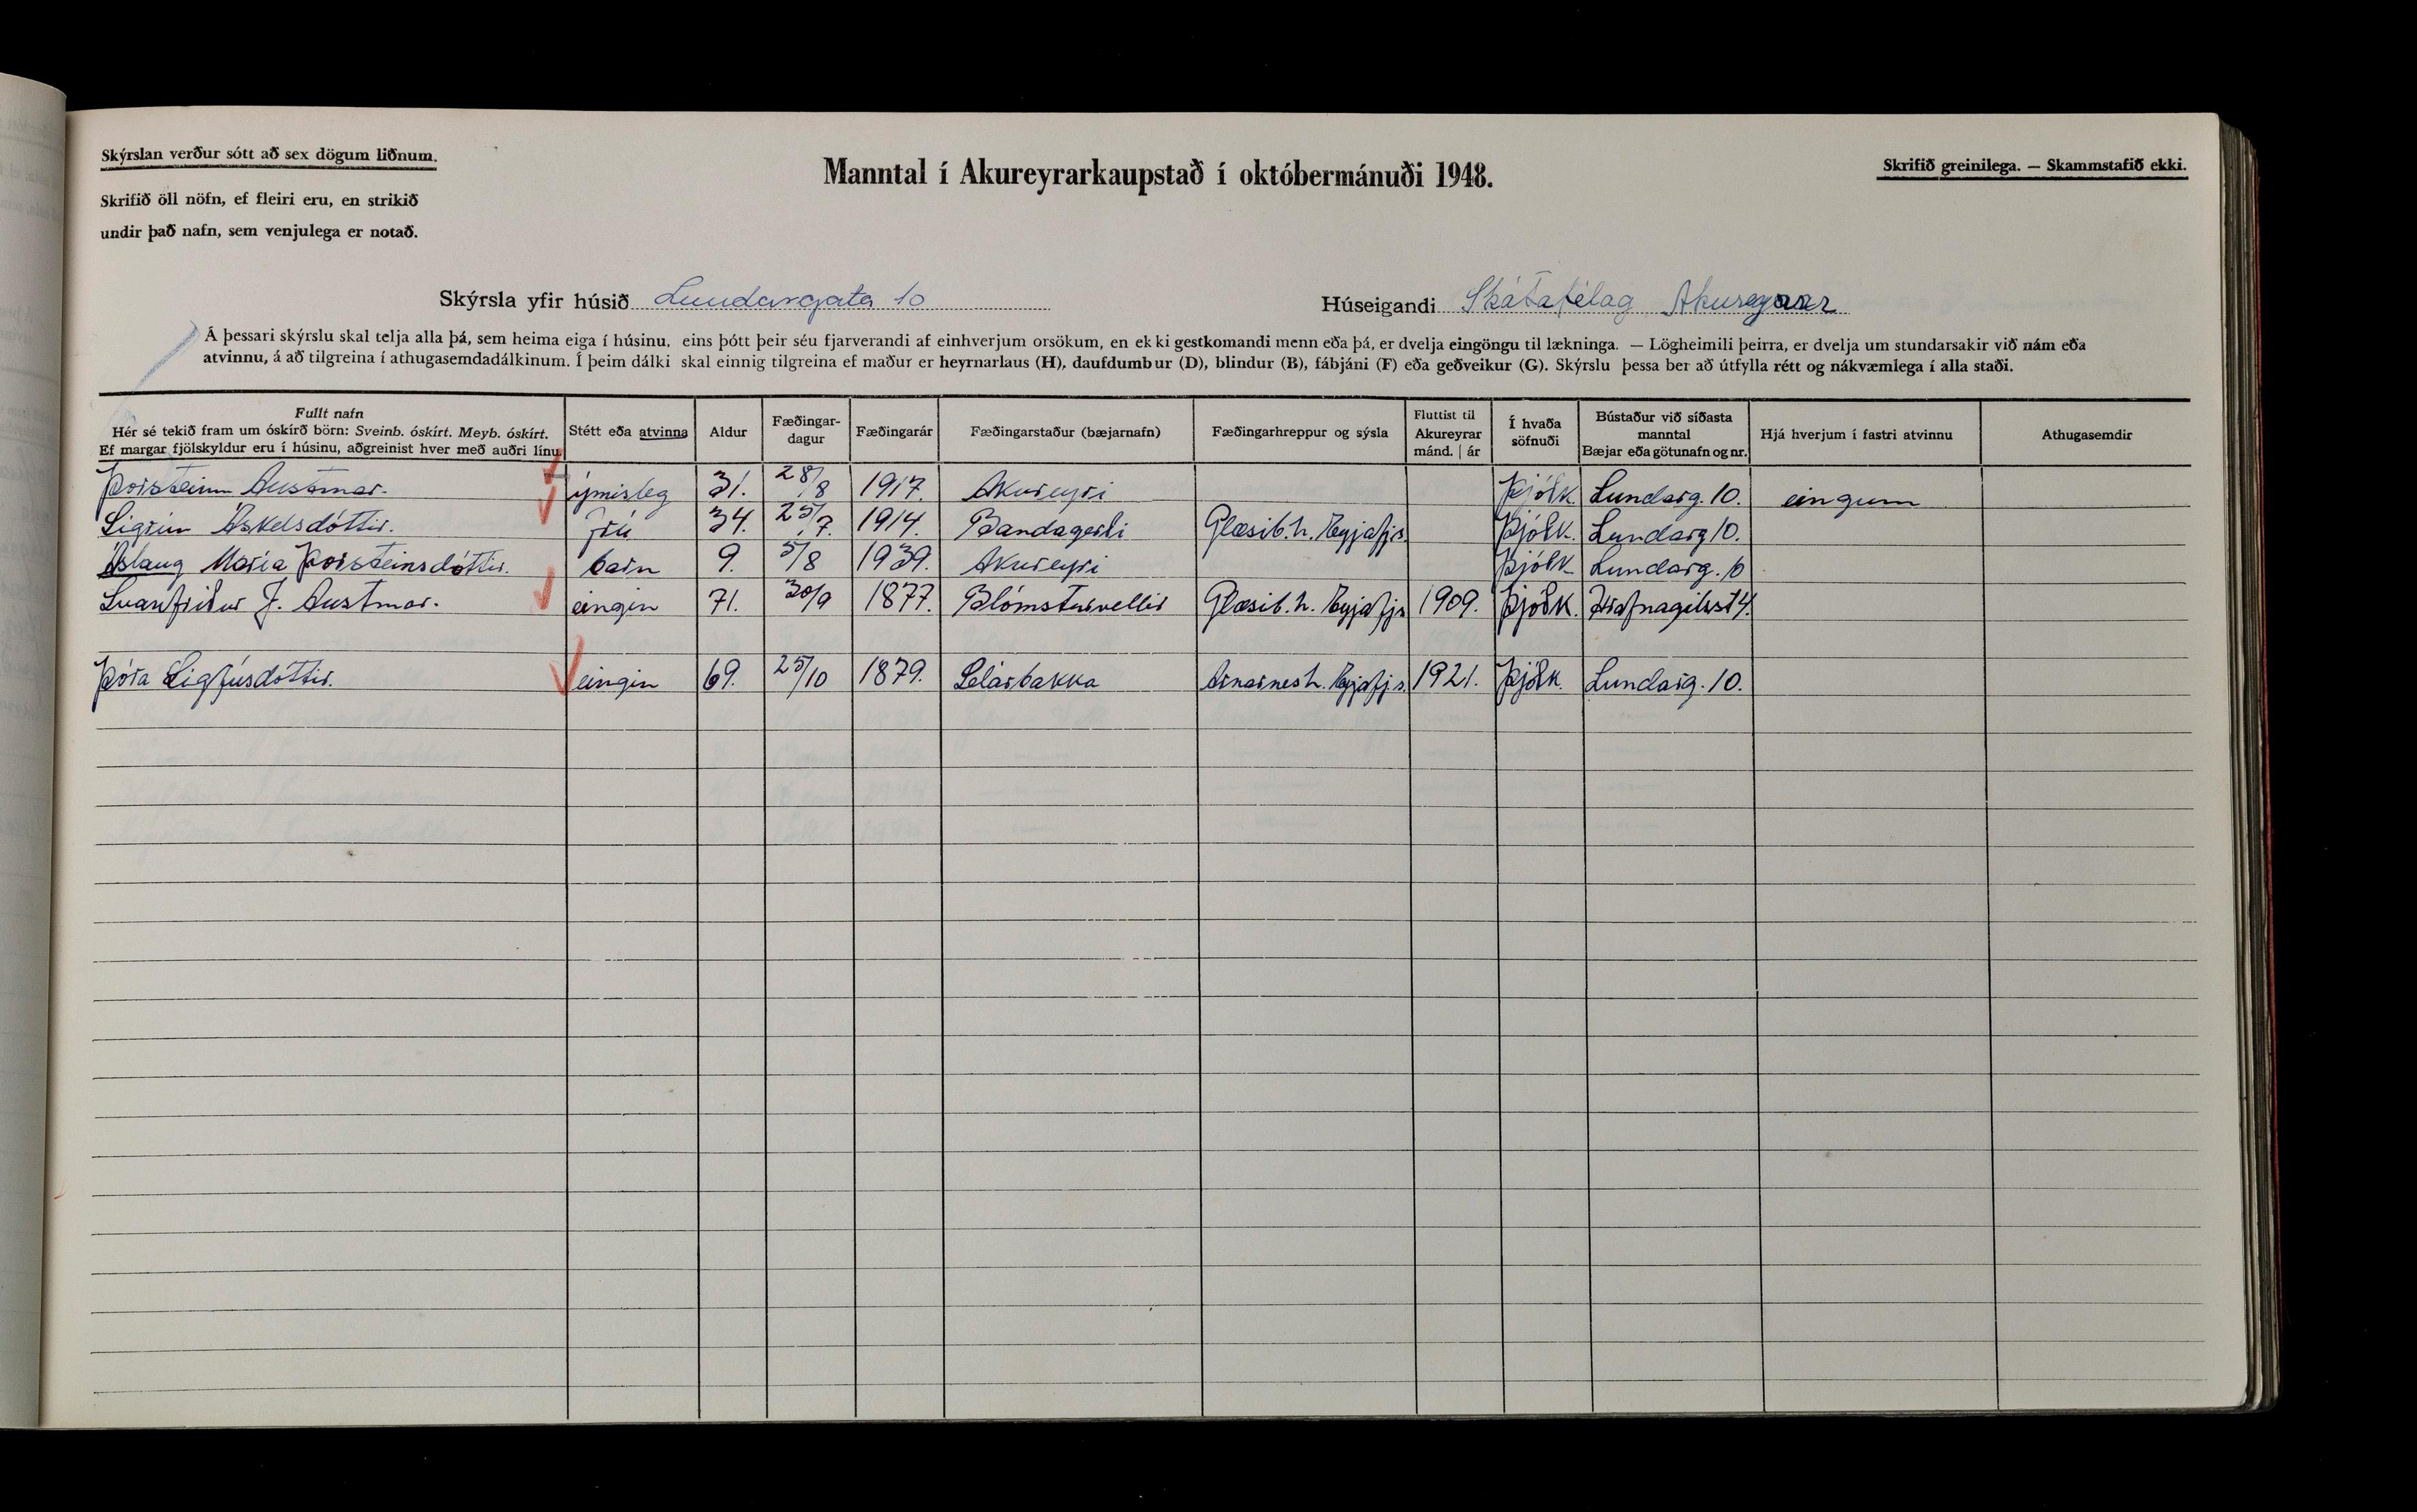 Skýrslan verður sótt að sex dögum liðnum.
Skrifið öll nöfn, ef fleiri eru, en strikið
undir það nafn, sem venjulega er notað.
Manntal í Akureyrarkaupstað í októbermánuði 1948.
Skrifið greinilega. — Skammstafið ekki.
Skýrsla yfir húsið Lundargata 10 Húseigandi Skátafélag Akureyrar
Á þessari skýrslu skal telja alla þá, sem heima eiga í húsinu, eins þótt þeir séu fjarverandi af einhverjum orsökum, en ekki gestkomandi menn eða þá, er dvelja eingöngu til lækninga. — Lögheimili þeirra, er dvelja um stundarsakir við nám eða
atvinnu, á að tilgreina í athugasemdadálkinum. Í þeim dálki skal einnig tilgreina ef maður er heyrnarlaus (H), daufdumbur (D), blindur (B), fábjáni (F) eða geðveikur (G). Skýrslu þessa ber að útfylla rétt og nákvæmlega í alla staði.
Fullt nafn
Hér sé tekið fram um óskírð börn: Sveinb. óskírt. Meyb. óskírt.
Ef margar fjölskyldur eru í húsinu, aðgreinist hver með auðri línu.
Stétt eða atvinna
Aldur
Fæðingar-
dagur
Fæðingarár
Fæðingarstaður (bæjarnafn)
Fæðingarhreppur og sýsla
Fluttist til
Akureyrar
mánd. | ár
Í hvaða
söfnuði
Bústaður við síðasta
manntal
Bæjar eða götunafn og nr.
Hjá hverjum í fastri atvinnu
Athugasemdir
Þorsteinn Austmar. ýmisleg 31. 28/8 1917. Akureyri Þjóðk. Lundarg. 10. eingum
Sigrún Áskelsdóttir. frú 34. 25/7. 1914. Bandagerði Glæsib.h. Eyjafjs. Þjóðk. Lundarg 10.
Áslaug María Þorsteinsdóttir. barn 9. 5/8 1939. Akureyri Þjóðk Lundarg. 10
Svanfríður J. Austmar. eingin 71. 30/9 1877. Blómsturvellir Glæsib.h. Eyjafjs 1909. Þjóðk. Hrafnagilsst 4.
Þóra Sigfúsdóttir. eingin 69. 25/10 1879. Selárbakka Arnarnesh. Eyjafj.s. 1921. Þjóðk. Lundarg. 10.